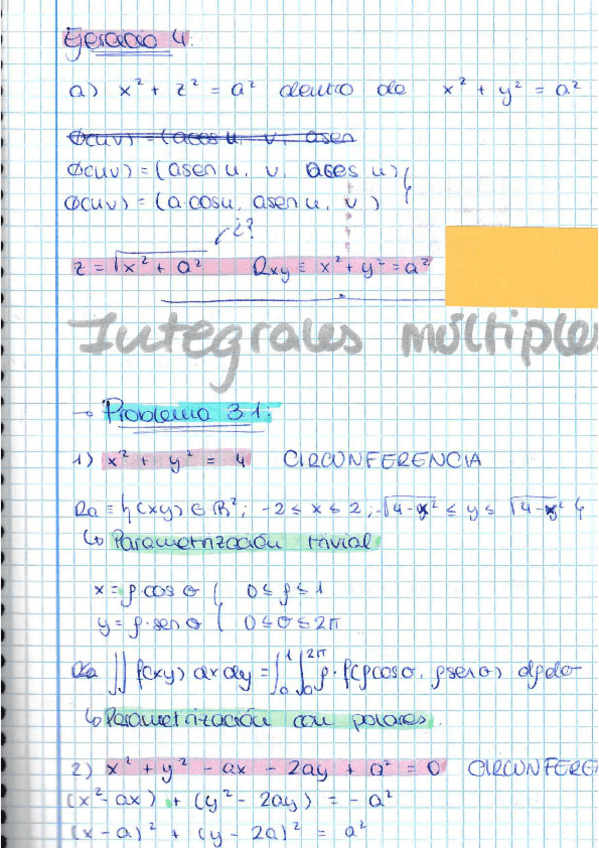 Ejercicio 4:
a) x² + z² = a² dentro de x² + y² = a²
Φ(u,v) = (a cos u, v, a sen
Φ(u,v) = (a sen u, v, a cos u)
Φ(u,v) = (a·cos u, a sen u, v)
¿?
z = √x² + a² Rxy ≡ x² + y² = a²
Integrales múltiples
→ Problema 3.1:
1) x² + y² = 4 CIRCUNFERENCIA
Ra ≡ {(x,y) ∈ R²; -2 ≤ x ≤ 2; -√4-x² ≤ y ≤ √4-x²}
↳ Parametrización trivial
x = ρ·cos θ { 0 ≤ ρ ≤ 1
y = ρ·sen θ { 0 ≤ θ ≤ 2π
∬ f(x,y) dx dy = ∫₀¹ ∫₀²π ρ · f(ρ cos θ, ρ sen θ) dρ dθ
↳ Parametrización con polares.
2) x² + y² - ax - 2ay + a² = 0 CIRCUNFERE
(x² - ax) + (y² - 2ay) = - a²
(x - a)² + (y - 2a)² = a²